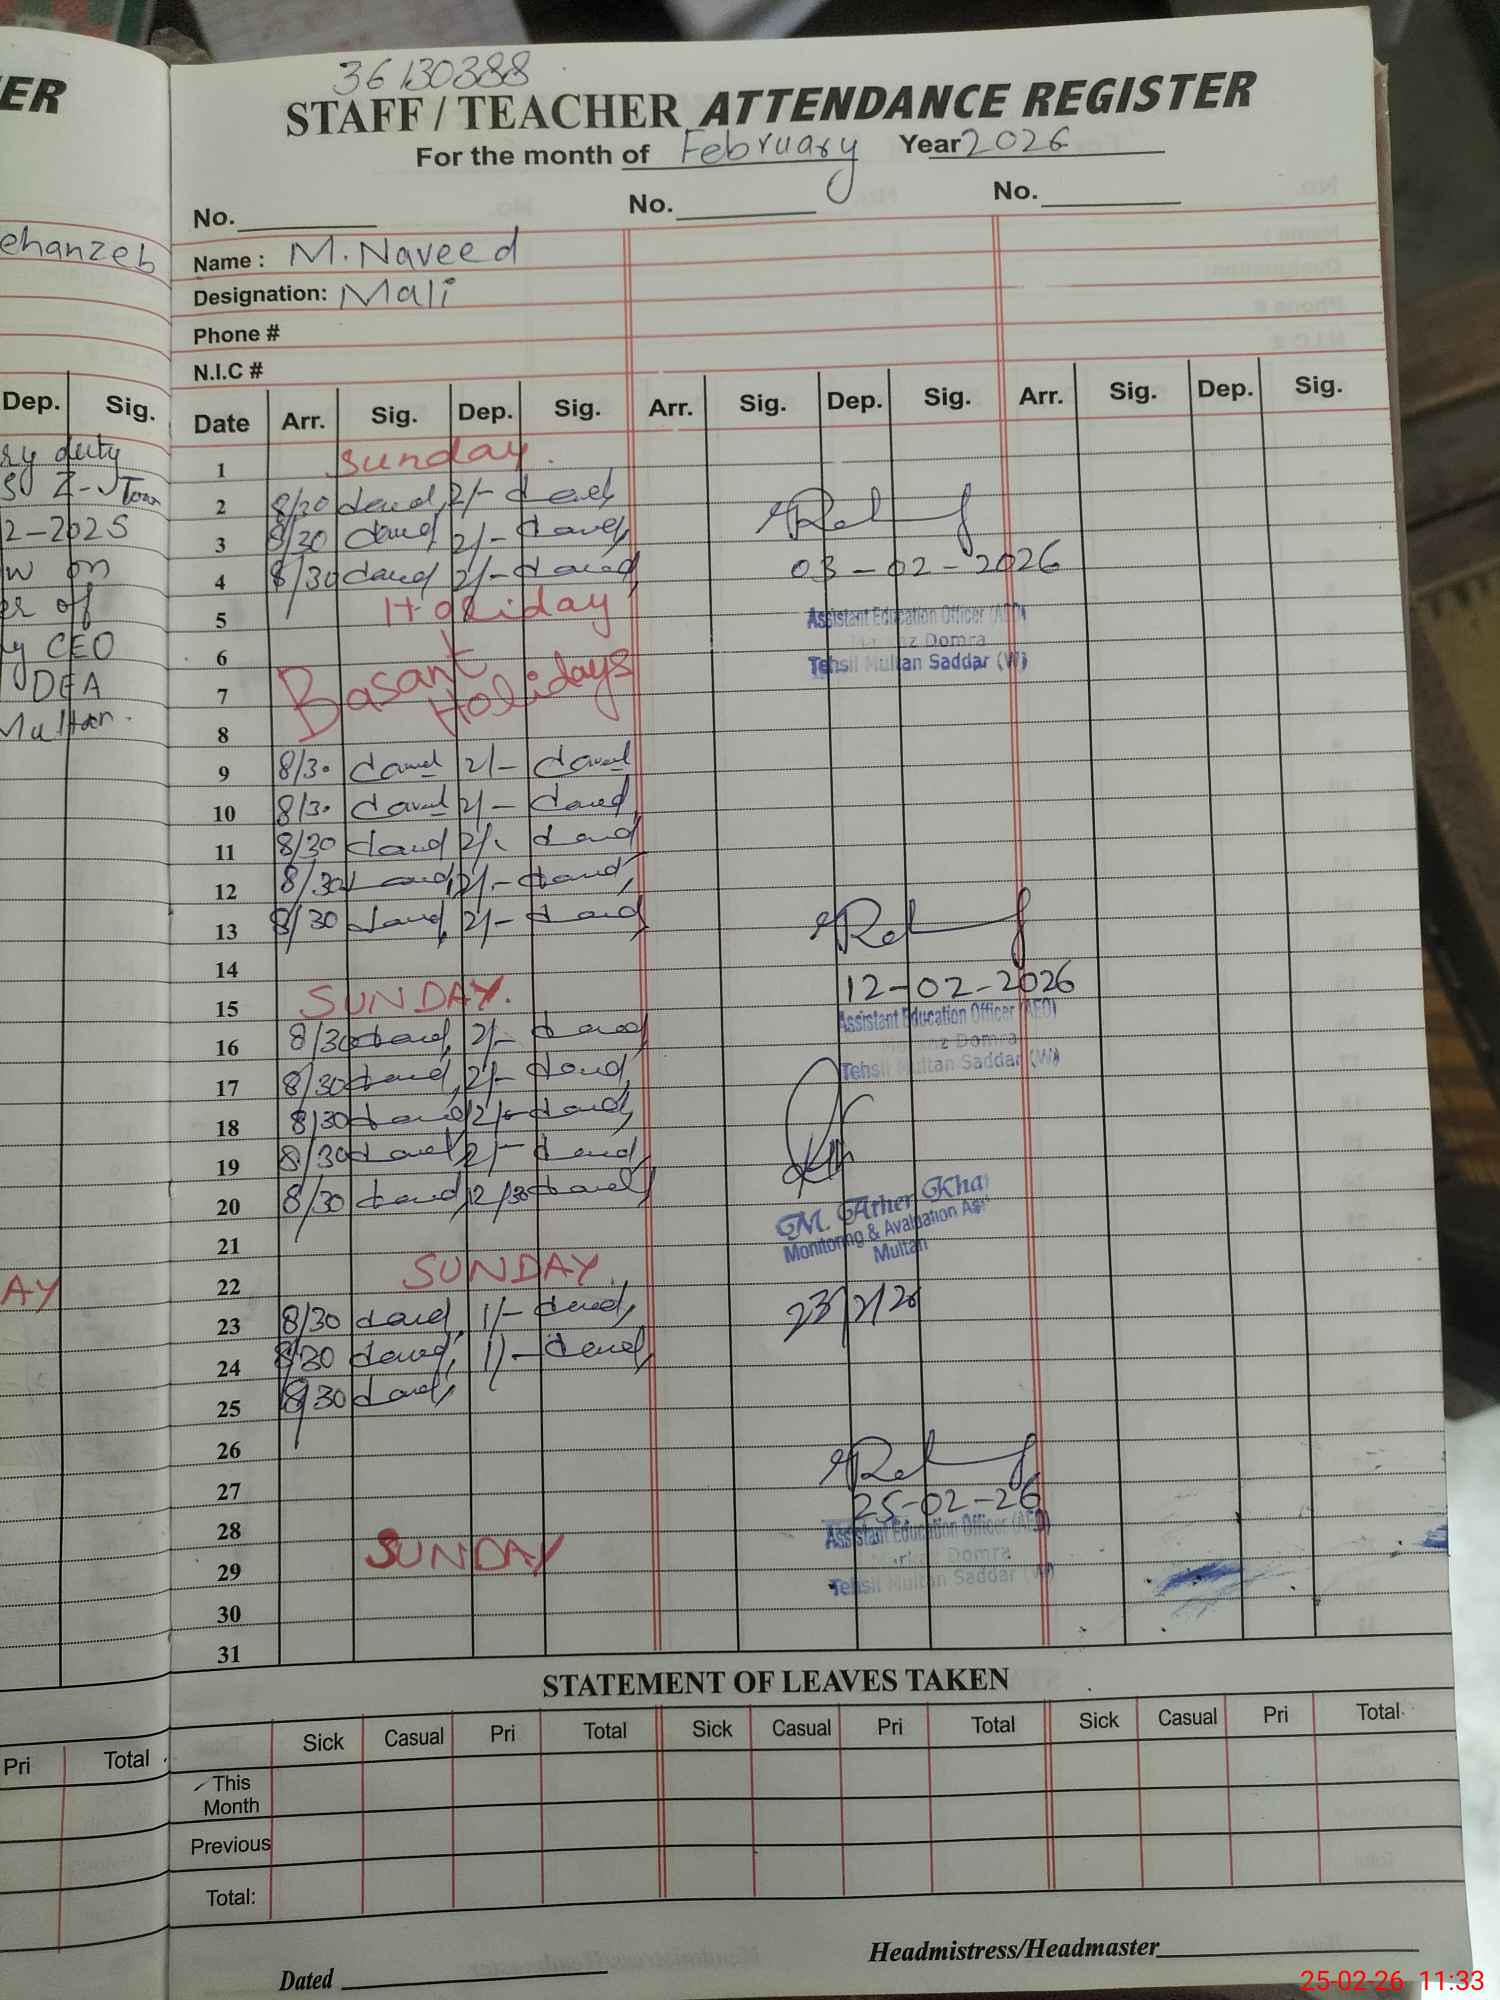 ER
36130388
STAFF / TEACHER ATTENDANCE REGISTER
For the month of February Year 2026
No. No. No.
ehanzeb
Name : M. Naveed
Designation: Mali
Phone #
N.I.C #
Dep. Sig.
Date Arr. Sig. Dep. Sig. Arr. Sig. Dep. Sig. Arr. Sig. Dep. Sig.
ry duty
1 Sunday.
2 8/30 2/-
2-2025
3 8/30 2/-
w on
4 8/30 2/- 03-02-2026
er of
5 Holiday Assistant Education Officer (AEO)
y CEO
Domra
6 Basant Holidays Tehsil Multan Saddar (W)
DEA
7
Multan.
8
9 8/30 2/-
10 8/30 2/-
11 8/30 2/-
12 8/30 2/-
13 8/30 2/-
14 12-02-2026
15 SUNDAY. Assistant Education Officer (AEO)
Domra
16 8/30 2/- Tehsil Multan Saddar (W)
17 8/30 2/-
18 8/30 2/-
19 8/30 2/-
20 8/30 12/30 M. Ather Kha
Monitoring & Avaluation Ass
21 Multan
AY
22 SUNDAY
23 8/30 1/- 23/2/26
24 8/30 1/-
25 8/30
26
27 25-02-26
28 Assistant Education Officer (AEO)
Domra
29 SUNDAY Tehsil Multan Saddar (W)
30
31
STATEMENT OF LEAVES TAKEN
Pri Total
Sick Casual Pri Total Sick Casual Pri Total Sick Casual Pri Total
This Month
Previous
Total:
Headmistress/Headmaster
Dated
25-02-26 11:33